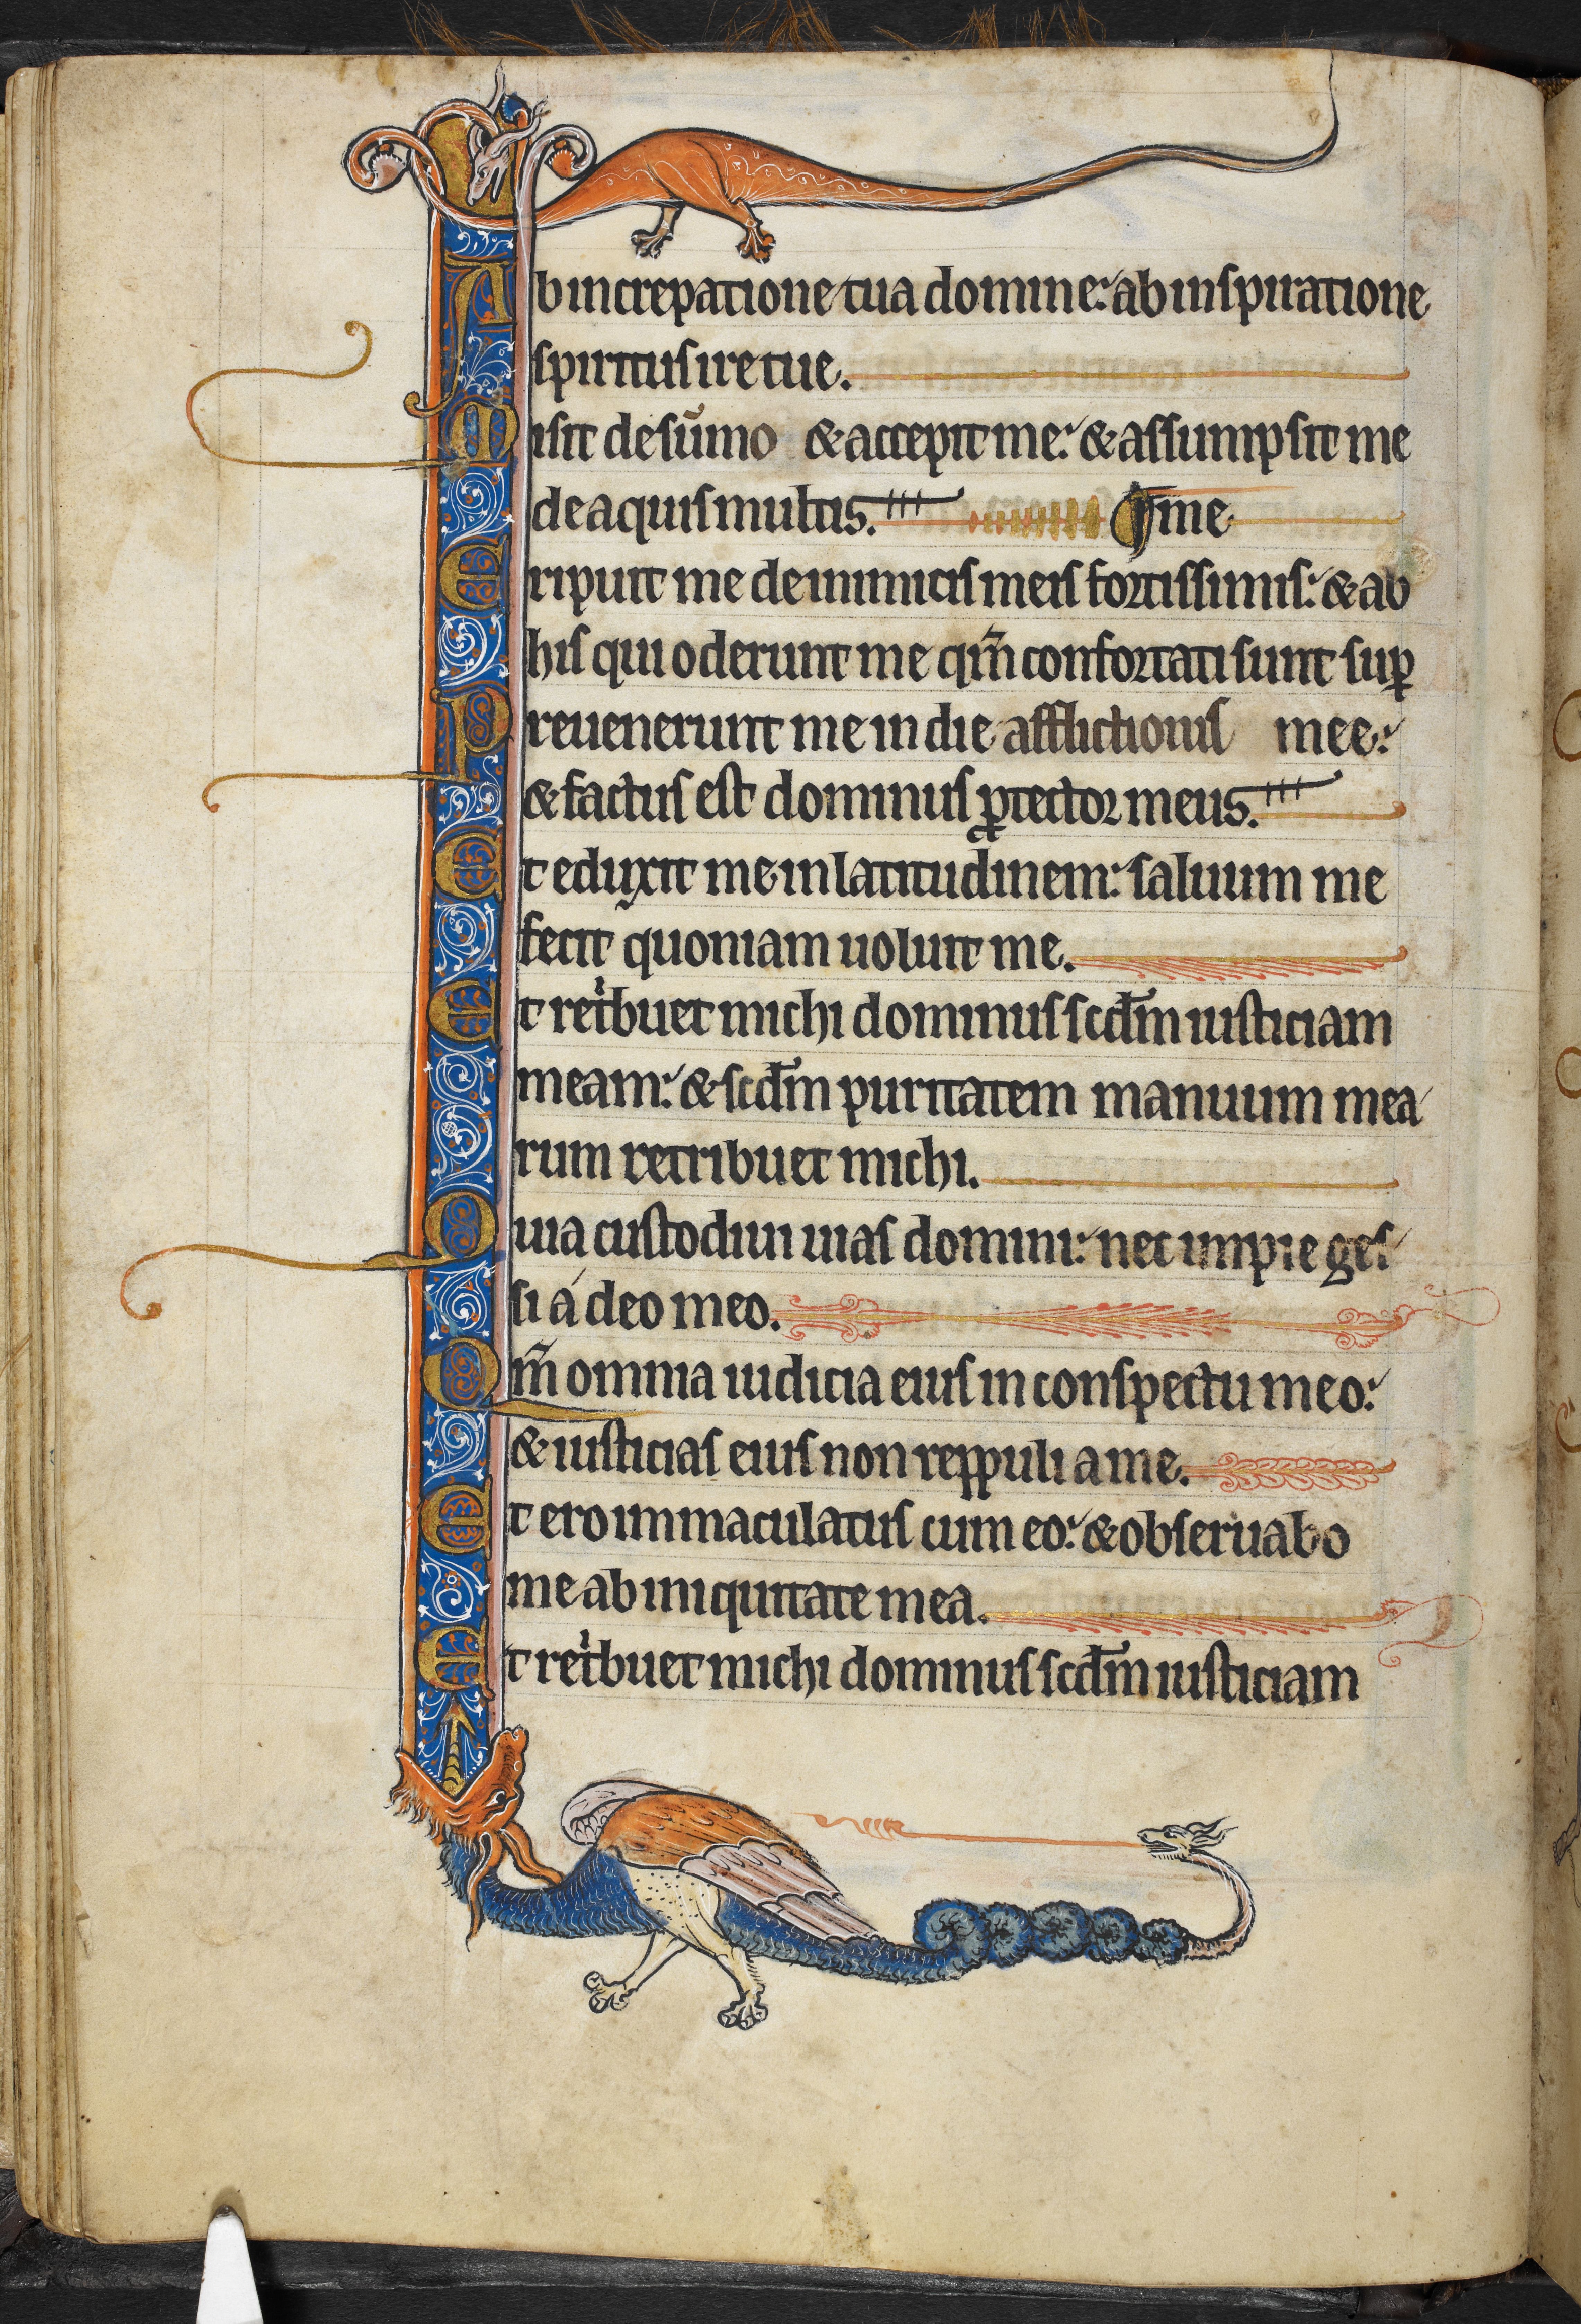 Ab increpatione tua domine: ab inspiratione
spiritus ire tue.
Misit de sum̄o & accepit me: & assumpsit me
de aquis multis. ¶ me
Eripuit me de inimicis meis fortissimis: & ab
his qui oderunt me qm̄ confortati sunt sup̱
Preuenerunt me in die afflictionis mee:
& factus est dominus ꝓtector meus.
Et eduxit me in latitudinem: saluum me
fecit quoniam uoluit me.
Et retͥbuet michi dominus scd̄m iusticiam
meam: & scd̄m puritatem manuum mea
rum retribuet michi.
Quia custodiui uias domini: nec impie ges
si á deo meo.
Qm̄ omnia iudicia eius in conspectu meo:
& iusticias eius non reppuli a me.
Et ero immaculatus cum eo: & obseruabo
me ab iniquitate mea.
Et retͥbuet michi dominus scd̄m iusticiam